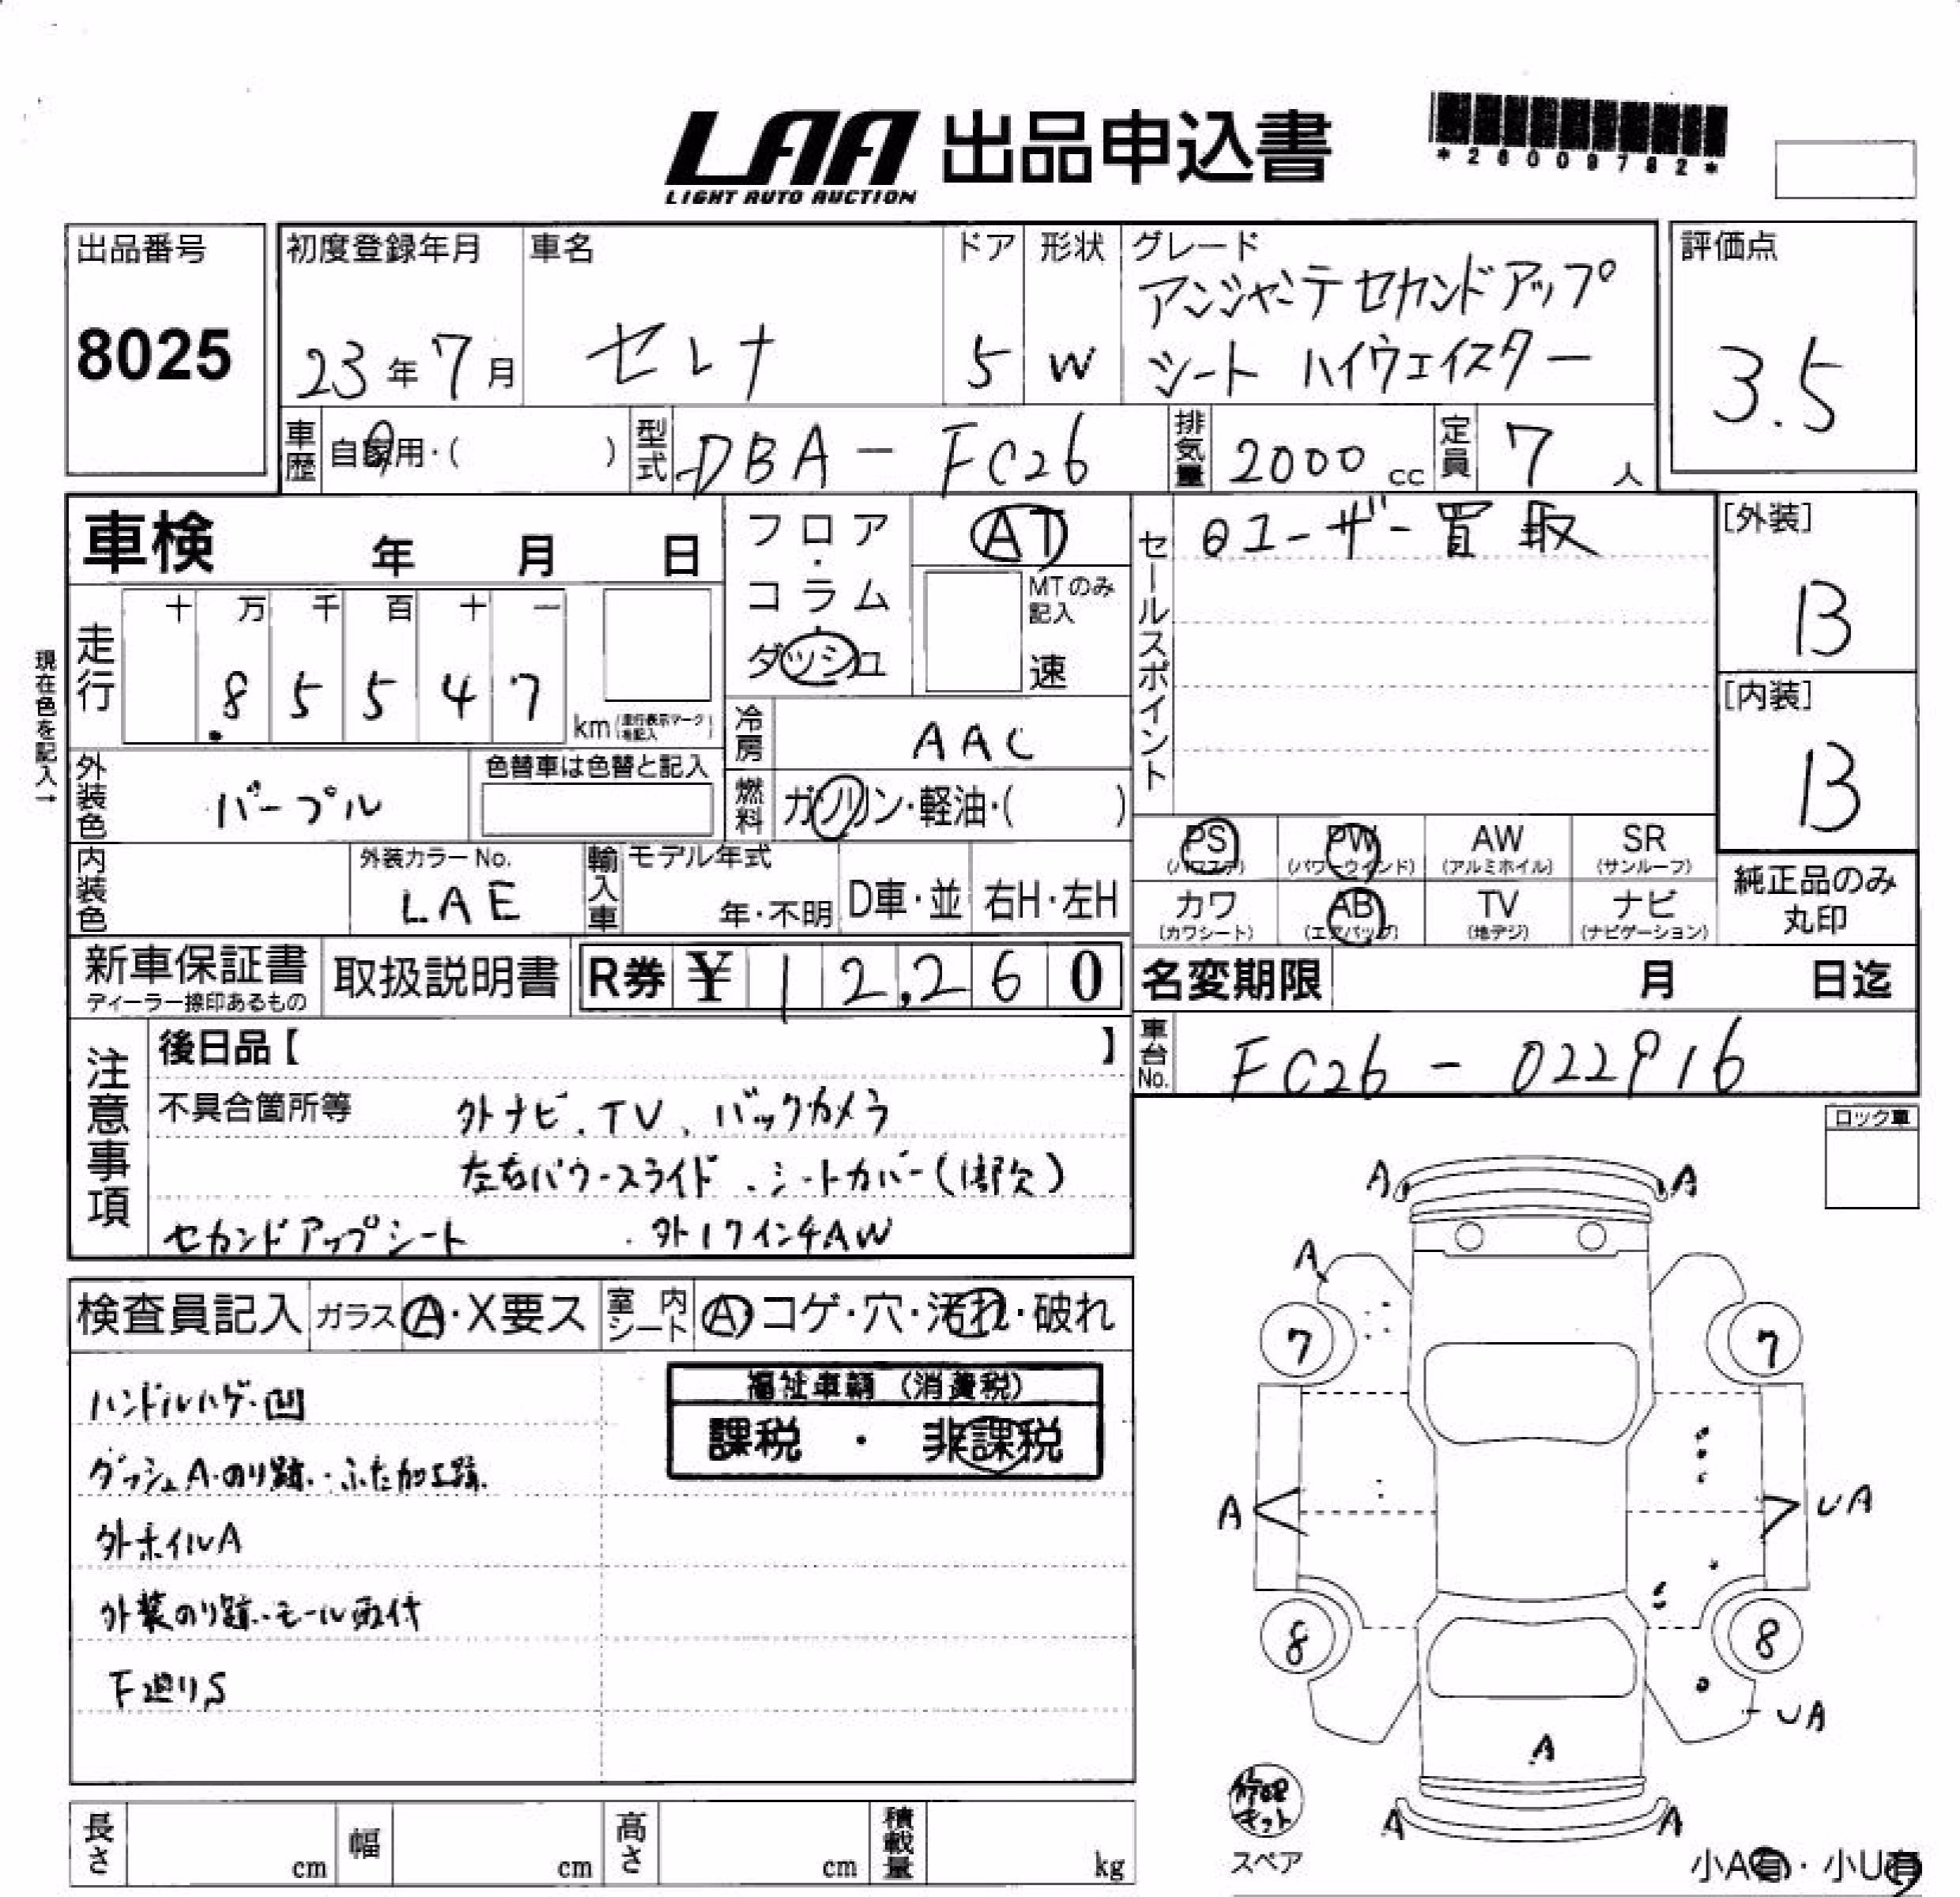 LAA 出品申込書
LIGHT AUTO AUCTION
*26009782*
出品番号
8025
初度登録年月
23年7月
車名
セレナ
ドア
5
形状
W
グレード
アンシャンテ セカンドアップ
シート ハイウェイスター
評価点
3.5
車歴 自家用・( )
型式 DBA-FC26
排気量 2000 cc
定員 7 人
車検 年 月 日
フロア・コラム・ダッシュ
AT
MTのみ記入
速
セールスポイント
◎ユーザー買取
[外装]
B
[内装]
B
現在色を記入→
走行
十 万 千 百 十 一
8 5 5 4 7
km (走行表示マークを記入)
冷房 AAC
燃料 ガソリン・軽油・( )
外装色 パープル
色替車は色替と記入
内装色
外装カラーNo.
LAE
輸入車 モデル年式
年・不明
D車・並
右H・左H
PS (パワステ)
PW (パワーウインド)
AW (アルミホイル)
SR (サンルーフ)
カワ (カワシート)
AB (エアバッグ)
TV (地デジ)
ナビ (ナビゲーション)
純正品のみ
丸印
新車保証書
ディーラー捺印あるもの
取扱説明書
R券 ¥ 12,260
名変期限 月 日迄
車台No. FC26-022916
注意事項
後日品【 】
不具合箇所等 外ナビ、TV、バックカメラ
左右パワースライド・シートカバー(1部欠)
セカンドアップシート ・外17インチAW
ロック車
検査員記入
ガラス A・X要ス
室内シート A・コゲ・穴・汚れ・破れ
ハンドルハゲ・凹
ダッシュA・のり跡・ふた加工跡
外ホイルA
外装のり跡・モール取付
下廻りS
福祉車輌(消費税)
課税 ・ 非課税
A A
A
7 7
A UA
8 8
UA
A
A A
修理キット
スペア
小A有・小U有
長さ cm
幅 cm
高さ cm
積載量 kg